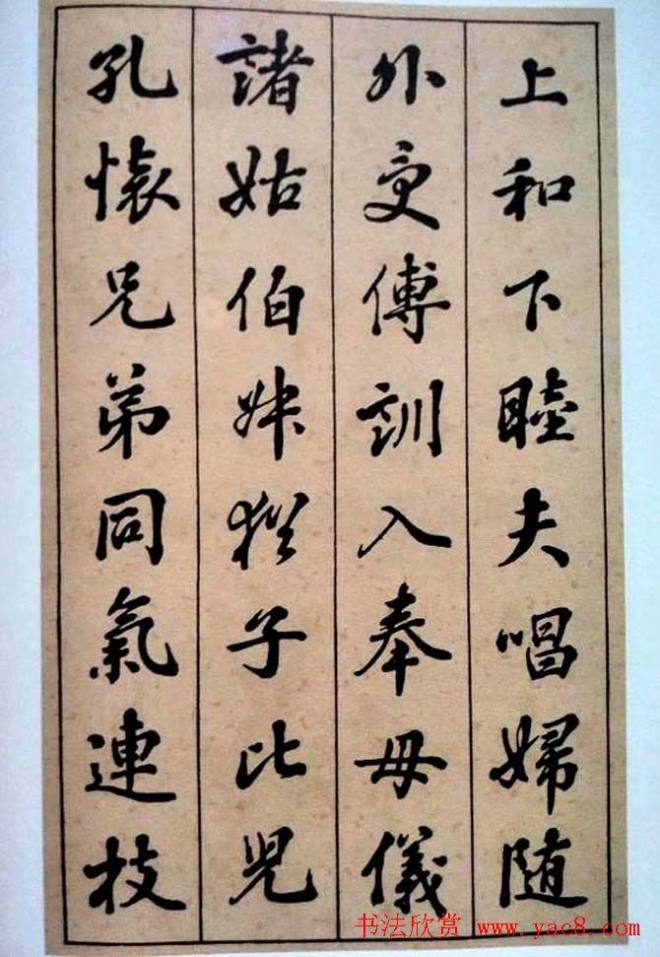 上和下睦夫唱婦随
外受傅訓入奉母儀
諸姑伯姊猶子比兒
孔懐兄弟同氣連枝
书法欣赏 www.yac8.com